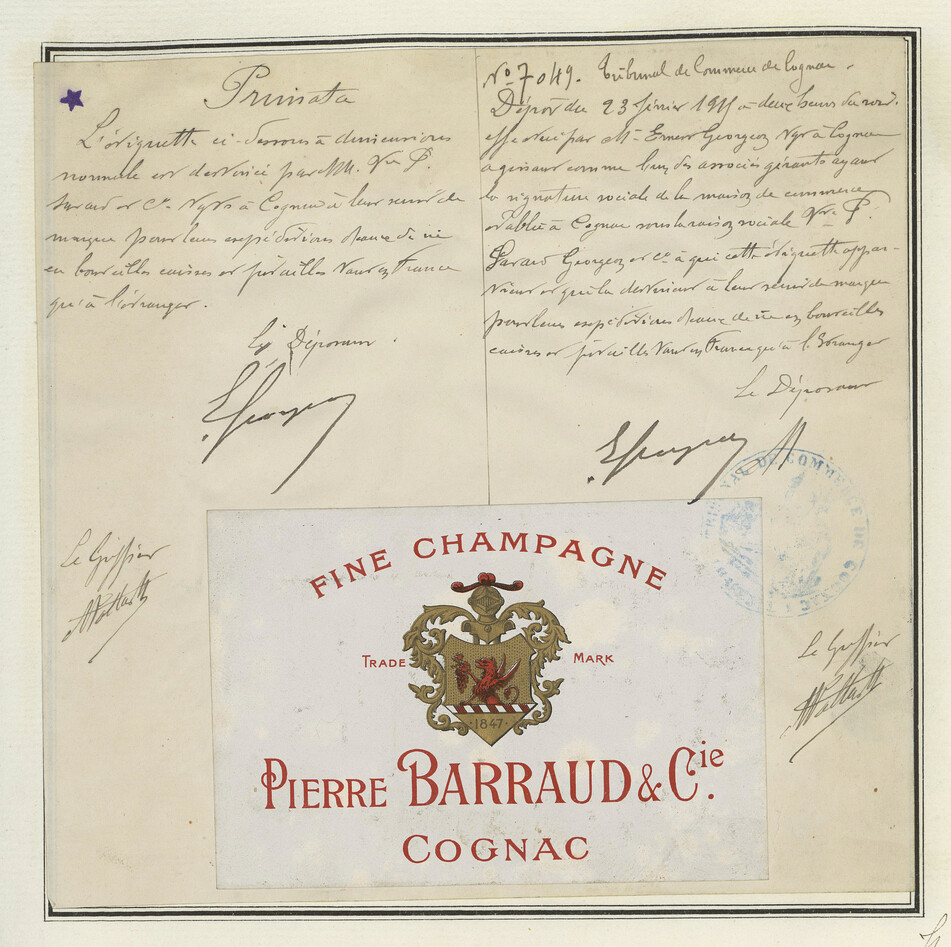 Primata
L'étiquette ci-dessous à dimensions
normale est destinée par MM. Vve P.
et Cie Ngts à Cognac à leur servir de
marque pour leurs expéditions d'eaux de vie
en bouteilles caisses et futailles tant en France
qu'à l'étranger.
Le Déposant.
Le Greffier
No 7049. Tribunal de Commerce de Cognac.
Dépôt du 23 février 1911 à deux heures du soir.
effectué par Mr Ernest Georgeon Ngt à Cognac
agissant comme l'un des associés gérants ayant
la signature sociale de la maison de commerce
établie à Cognac sous la raison sociale Vve P.
Georgeon et Co à qui cette étiquette appar-
tient et qui la destinent à leur servir de marque
pour leurs expéditions d'eaux de vie en bouteilles
caisses et futailles tant en France qu'à l'Etranger
Le Déposant
TRIBUNAL DE COMMERCE DE COGNAC
Le Greffier
FINE CHAMPAGNE
TRADE MARK
·1847·
PIERRE BARRAUD & Cie.
COGNAC